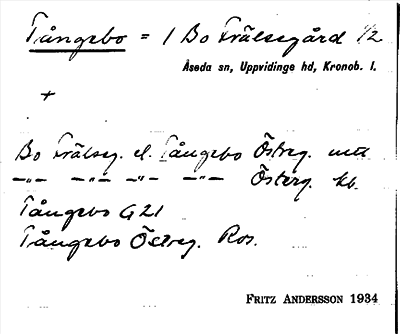 Tångebo = 1 Bo Frälsegård 1/2
Åseda sn, Uppvidinge hd, Kronob. l.
+
Bo Frälseg. el. Tångebo Östreg. mtl
—"— —"— —"— —"— Österg. kb.
Tångebo G21
Tångebo Östreg. Ros.
FRITZ ANDERSSON 1934